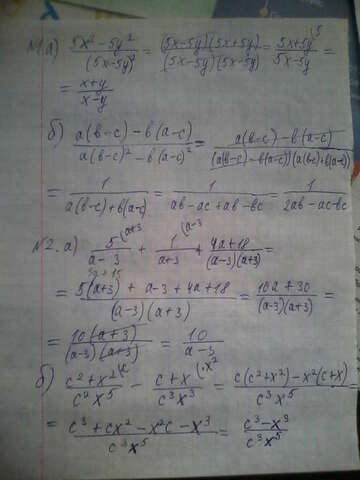 №1 а) (5x² - 5y²)/(5x-5y)² = ((5x-5y)(5x+5y))/((5x-5y)(5x-5y)) = (5x+5y)/(5x-5y) \5 =
= (x+y)/(x-y)
б) (a(b-c) - b(a-c))/(a(b-c)² - b(a-c)²) = (a(b-c) - b(a-c))/((a(b-c) - b(a-c))(a(b-c)+b(a-c)))
= 1/(a(b-c)+b(a-c)) = 1/(ab-ac+ab-bc) = 1/(2ab-ac-bc)
№2. а) 5/(a-3) (a+3 + 1/(a+3) (a-3 + (4a+18)/((a-3)(a+3)) =
5a+15
= (5(a+3) + a-3 + 4a+18)/((a-3)(a+3)) = (10a+30)/((a-3)(a+3)) =
= (10(a+3))/((a-3)(a+3)) = 10/(a-3)
б) (c²+x²)/(c²x⁵) (c - (c+x)/(c³x³) (·x² = (c(c²+x²) - x²(c+x))/(c³x⁵)
= (c³+cx²-x²c-x³)/(c³x⁵) = (c³-x³)/(c³x⁵)